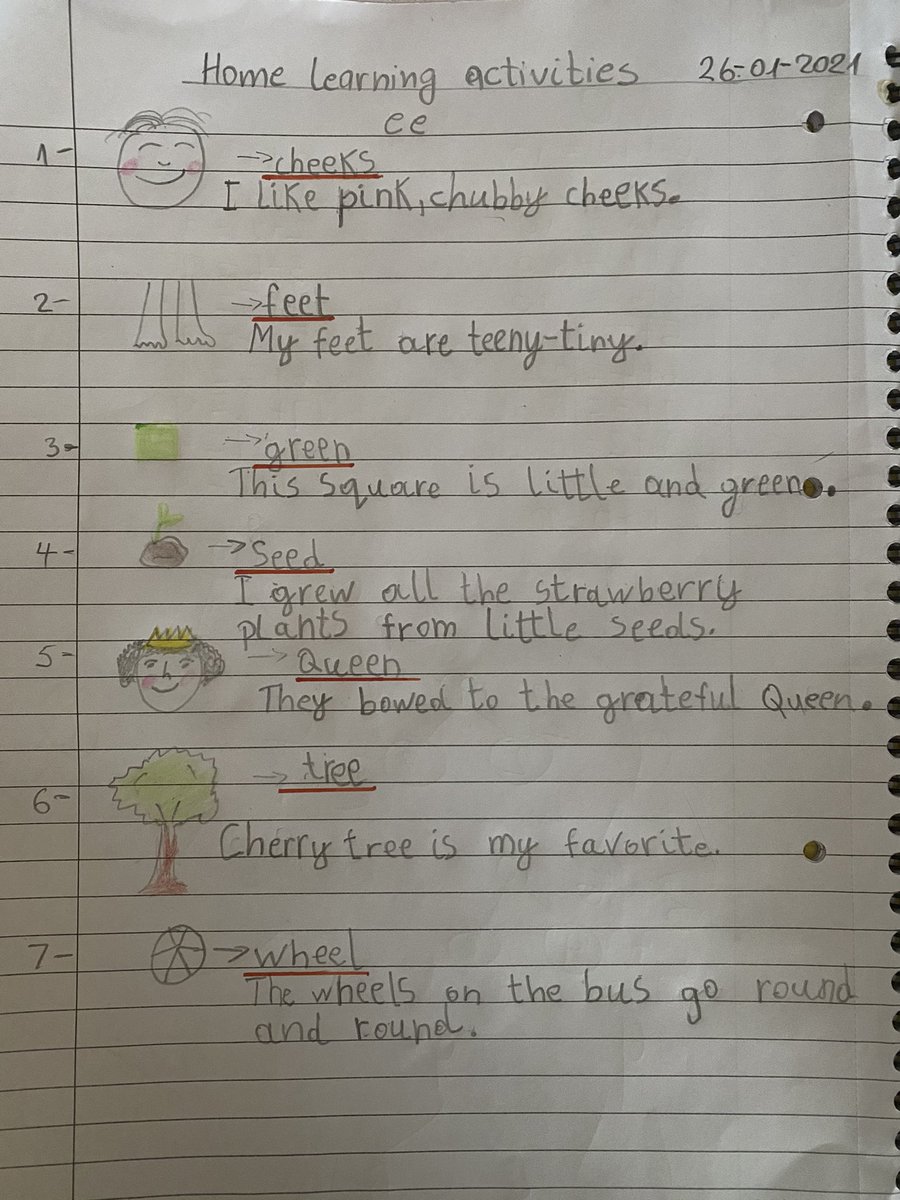 Home learning activities 26-01-2021
ee
1- → cheeks
I like pink, chubby cheeks.
2- → feet
My feet are teeny-tiny.
3- → green
This square is little and green.
4- → Seed
I grew all the strawberry
plants from little seeds.
5- → Queen
They bowed to the grateful Queen.
6- → tree
Cherry tree is my favorite.
7- → wheel
The wheels on the bus go round
and round.